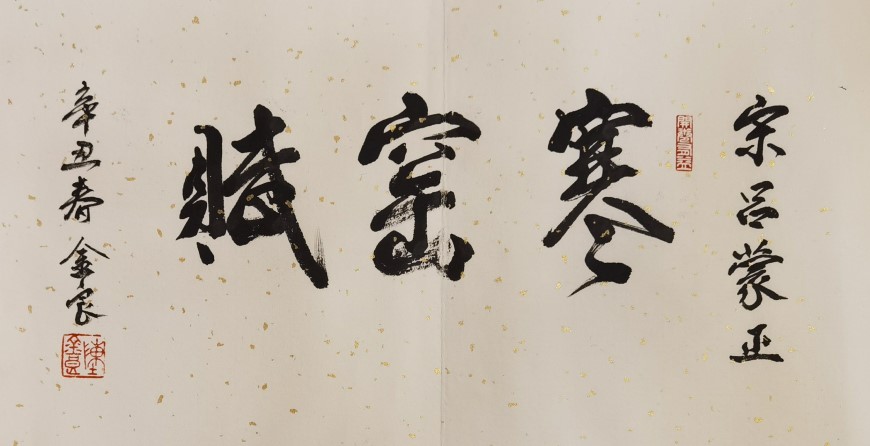 宋吕蒙正
寒窑赋
辛丑春金良